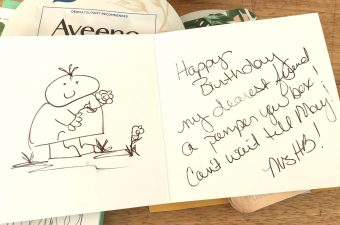 DERMATOLOGIST RECOMMENDED
Aveeno
Happy
Birthday
my dearest friend
a pamper you box!
Can't wait till May!
MrsHB!